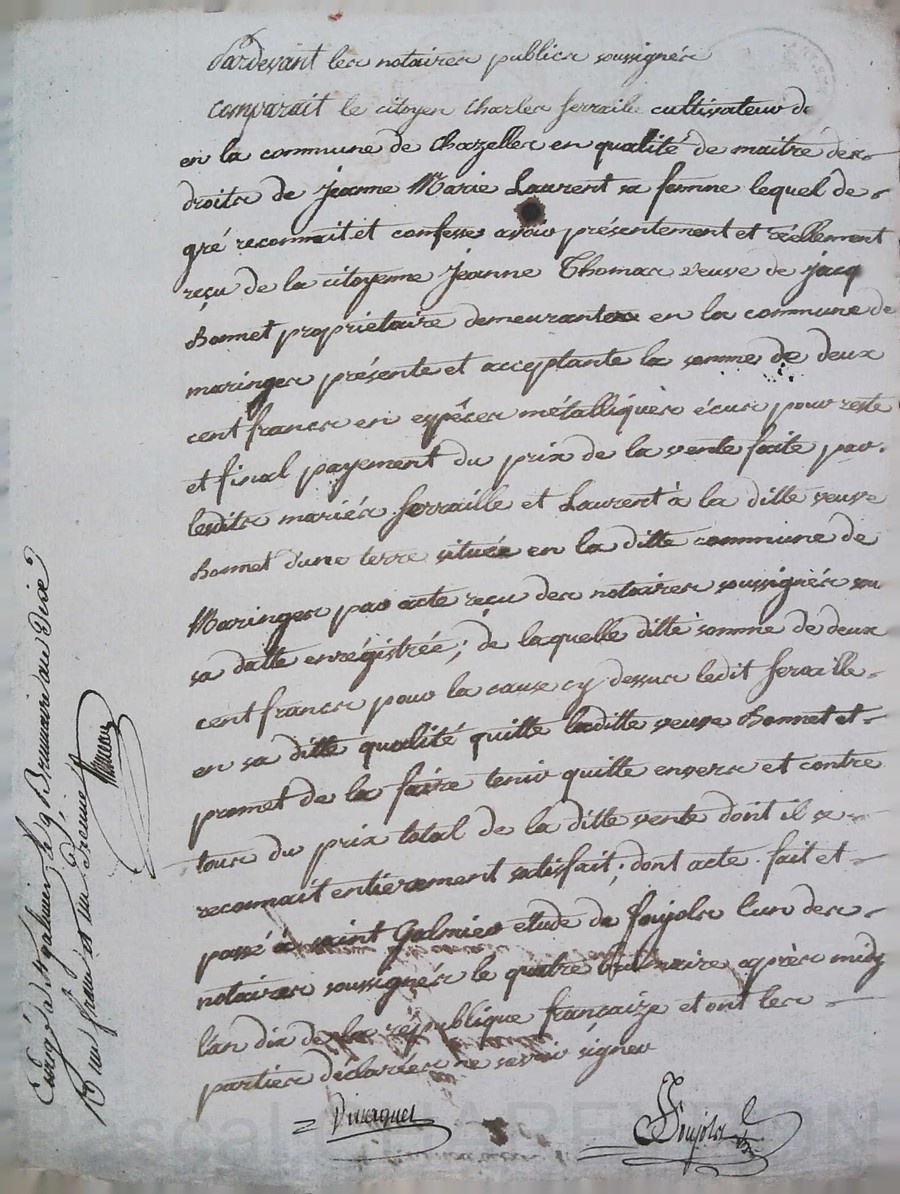 Pardevant les notaires publics soussignés
comparait le citoyen Charles ferraille cultivateur de
en la commune de Chazelles en qualité de maitre des
droits de jeanne Marie Laurent sa femme lequel de
gré reconnait et confesse avoir présentement et réellement
reçu de la citoyenne jeanne Thomas veuve de jacq
Bonnet propriétaire demeurante en la commune de
maringes présente et acceptante la somme de deux
cent francs en espêces métalliques écus pour reste
et final payement du prix de la vente faite par
lesdits mariés ferraille et Laurent à la ditte veuve
Bonnet d'une terre située en la ditte commune de
Maringes par acte reçu des notaires soussignés sou
sa datte enrégistrée; de laquelle ditte somme de deux
cent francs pour la cause cy dessus ledit ferraille
en sa ditte qualité quitte laditte veuve Bonnet et
promet de la faire tenir quitte envers et contre
tous du prix total de la ditte vente dont il se
reconnait entierement satisfait; dont acte. fait et
passé à saint Galmier etude de Poujols l'un des
notaires soussignés le quatre brumaire après midy
l'an dix de la république françaize et ont les
parties déclarées ne savoir signer
Poujols
Enreg.é à St galmier le 9 Brumaire an Dix
R un franc et un Decime